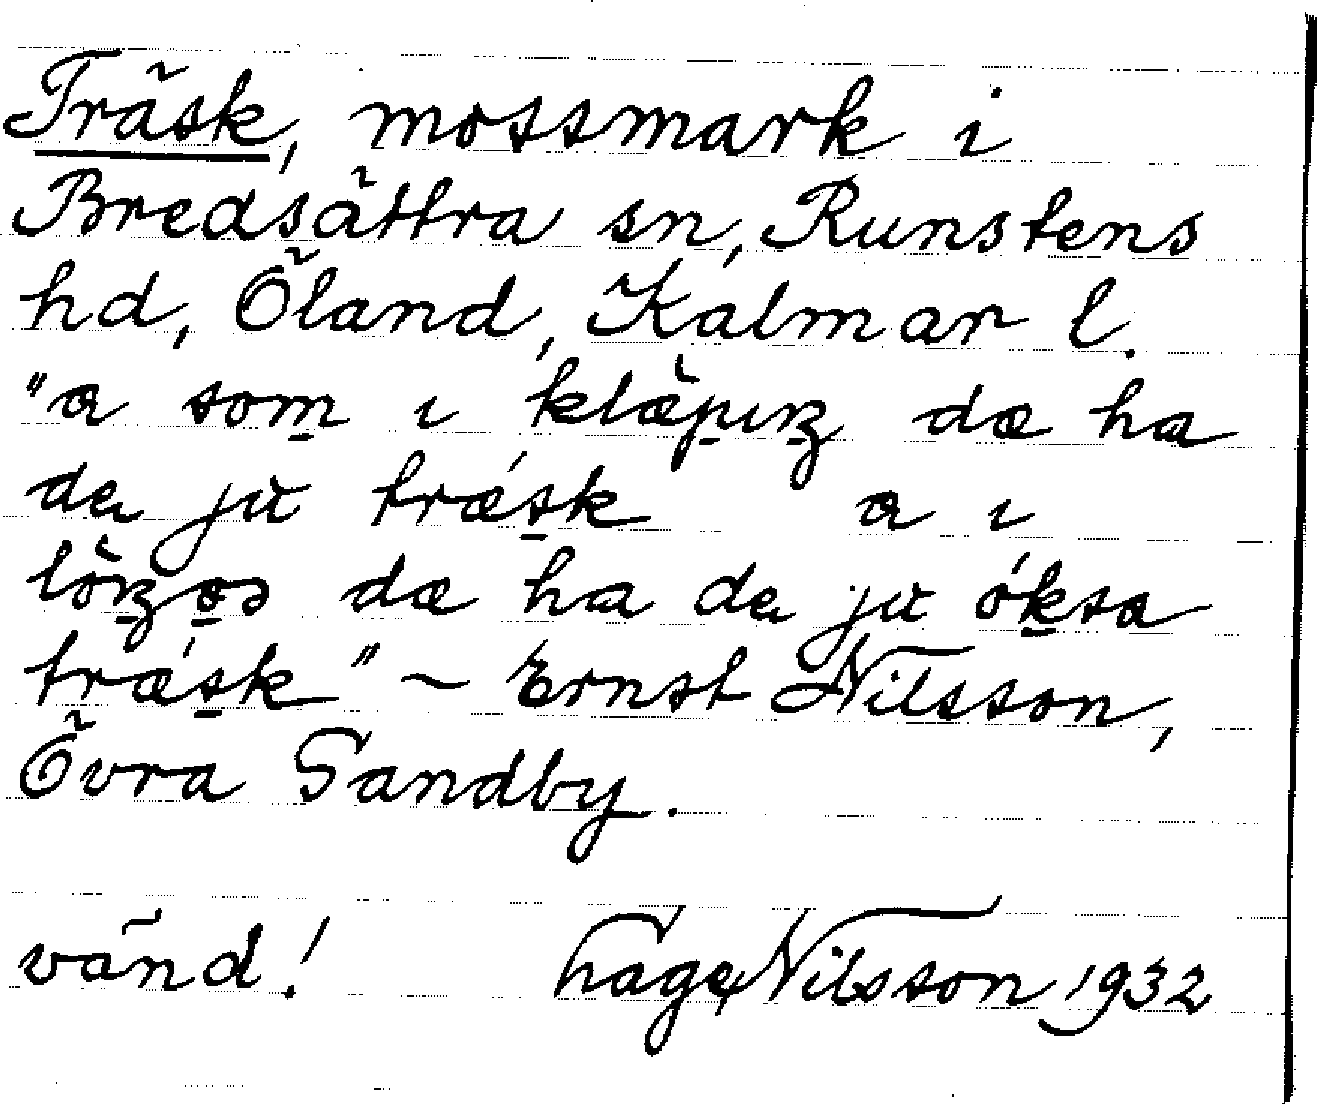 Träsk, mossmark i
Bredsättra sn, Runstens
hd, Öland, Kalmar l.
"a som ı da ha
da ju træsk a ı
da ha da ju óksa
træsk" ~ Ernst Nilsson,
Övra Sandby.
vänd! Nilsson 1932